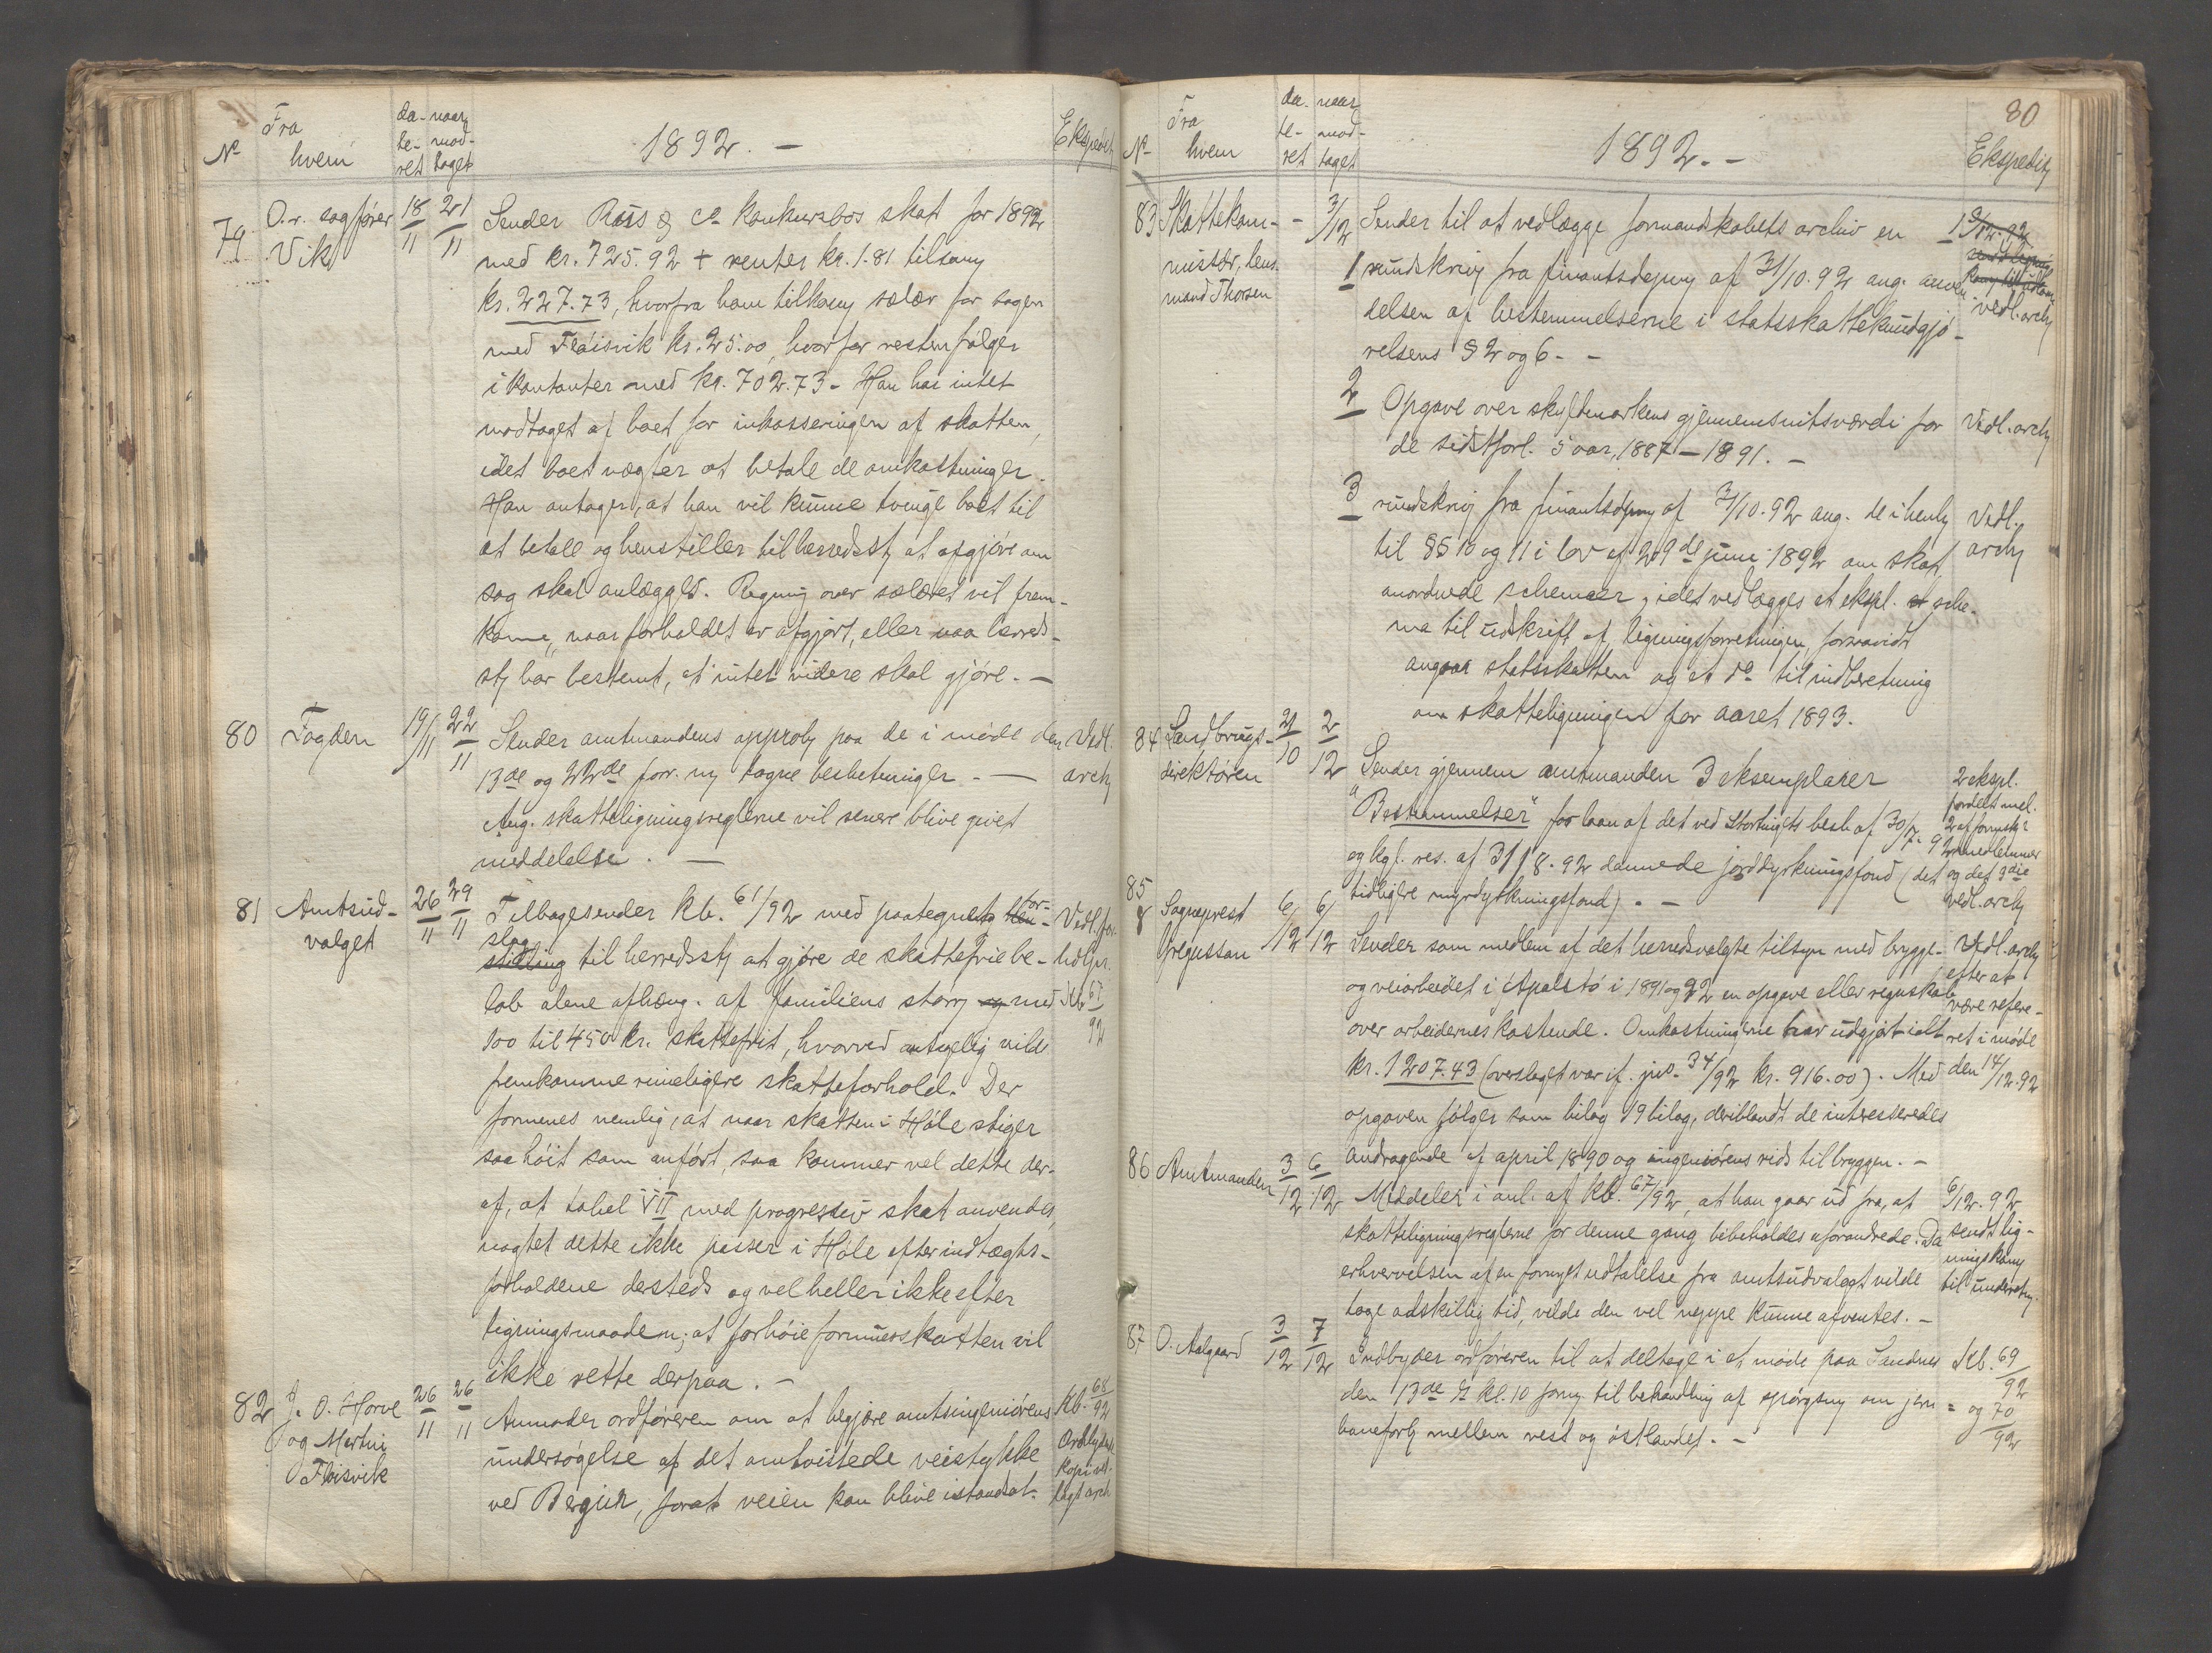 No
Fra hvem
da-te-ret
naar mod-taget
1892. —
Ekspedit
79
O.r. sagfører Vik
18/11
21/11
Sender Røss & Co konkursbos skat for 1892
med kr. 725.92 + renter kr. 1.81 tilsamm
kr. 227.73, hvorfra ham tilkomm salær for sagen
med Fløisvik kr. 25.00, hvorfor resten følger
i kontanter med kr. 702.73 - Han har intet
modtaget af boet for inkasseringen af skatten,
idet boet vægter at betale de omkostninger.
Han antager, at han vil kunne tvinge boet til
at betale og henstiller til herredsst at afgjøre om
sag skal anlægges. Regning over salæret vil frem-
komme, naar forholdet er afgjørt, eller naa herreds-
st har bestemt, at intet videre skal gjøre. —
80
Fogden
19/11
22/11
Sender amtmandens approb paa de i møde den
13de og 22de forr. m tagne beslutninger. —
Ang. skatteligningsreglerne vil senere blive givet
meddelelse. —
Vedl. arch
81
Amtsud-
valget
26/11
29/11
Tilbagesender kb. 61/92 med paategning hen- for-
stilling slag til herredsst at gjøre de skattefrie be-
løb alene afhæng. af familiens størr og med
100 til 450 kr. skattefrit, hvorved antagelig vilde
fremkomme rimeligere skatteforhold. Der
formenes nemlig, at naar skatten i Høle stiger
saa høit som anført, saa kommer vel dette der-
af, at tabel VII med progressiv skat anvendes,
uagtet dette ikke passer i Høle efter indtægts-
forholdene dersteds og vel heller ikke efter
ligningsmaaden; at forhøie formuesskatten vil
ikke rette derpaa. —
Vedl. for-
hdlpr.
Kb 67/92
82
J. O. Horve
og Martin
Fløisvik
26/11
26/11
Anmoder ordføreren om at begjære amtsingeniørens
undersøgelse af det omtvistede veistykke
ved Bergir, forat veien kan blive istandsat.
Kb. 68/92
kopi ved-
lagt arch
80
No
Fra hvem
da-te-ret
naar mod-taget
1892. —
Ekspedit
83
Skattekom-
missær, lens-
mand Thorsen
-
3/12
Sender til at vedlægge formandskabets archiv en
1 rundskriv fra finantsdepm af 31/10.92 ang. anven-
delsen af bestemmelserne i statsskattekundgjø-
relsens § 2 og 6. —
vedl. arch
2 Opgave over skyldmarkens gjennemsnitsværdi for
de sidstforl. 5 aar, 1887 — 1891. —
Vedl. arch
3 rundskriv fra finantsdpm af 31/10.92 ang. de i henh
til §§ 10 og 11 i lov af 29de juni 1892 om skat
anordnede schemaer, idet vedlægges et ekspl. af sche-
ma til udskrift af ligningsforretningen, forsaavidt
angaar statsskatten og et do til indberetning
om skatteligningen for aaret 1893.
Vedl. arch
84
Landbrugs-
direktøren
21/10
2/12
Sender gjennem amtmanden 3 eksemplarer
"Bestemmelser" for laan af det ved Stortingets besl. af 30/7. 92
og kgl. res. af 31/8.92 dannede jorddyrkningsfond (det
tidligere myrdyrkningsfond). —
2 ekspl.
fordelt mel.
2 af formsk's
medlemmer
og det 3die
vedl. arch
85
Sogneprest
Gregussen
6/12
6/12
Sender som medlem af det herredsvalgte tilsyn med brygge-
og veiarbeidet i Apalstø i 1891 og 92 en opgave eller regnskab
over arbeidernes kostende. Omkostningerne har udgjort ialt
kr. 1207.43 (overslaget var if. jno. 34/92 kr. 916.00). Med
opgaven følger som bilag 19 bilag, deriblandt de interesseredes
andragende af april 1890 og ingeniørens rids til bryggen. —
Vedl. arch
efter at
være refere-
ret i møde
den 14/12.92
86
Amtmanden
3/12
6/12
Meddeler i anl. af kb. 67/92, at han gaar ud fra, at
skatteligningsreglerne for denne gang bibeholdes uforandrede. Da
erhvervelsen af en fornyet udtalelse fra amtsudvalget vilde
tage adskillig tid, vilde den vel neppe kunne afventes. —
6/12.92
sendt lig-
ningskom
til underetn.
87
O. Aalgaard
3/12
7/12
Indbyder ordføreren til at deltage i et møde paa Sandnes
den 13de ds kl. 10 form. til behandling af spørgsm om jern-
baneforb mellem vest og østlandet. —
Kb. 69/92
og 70/92